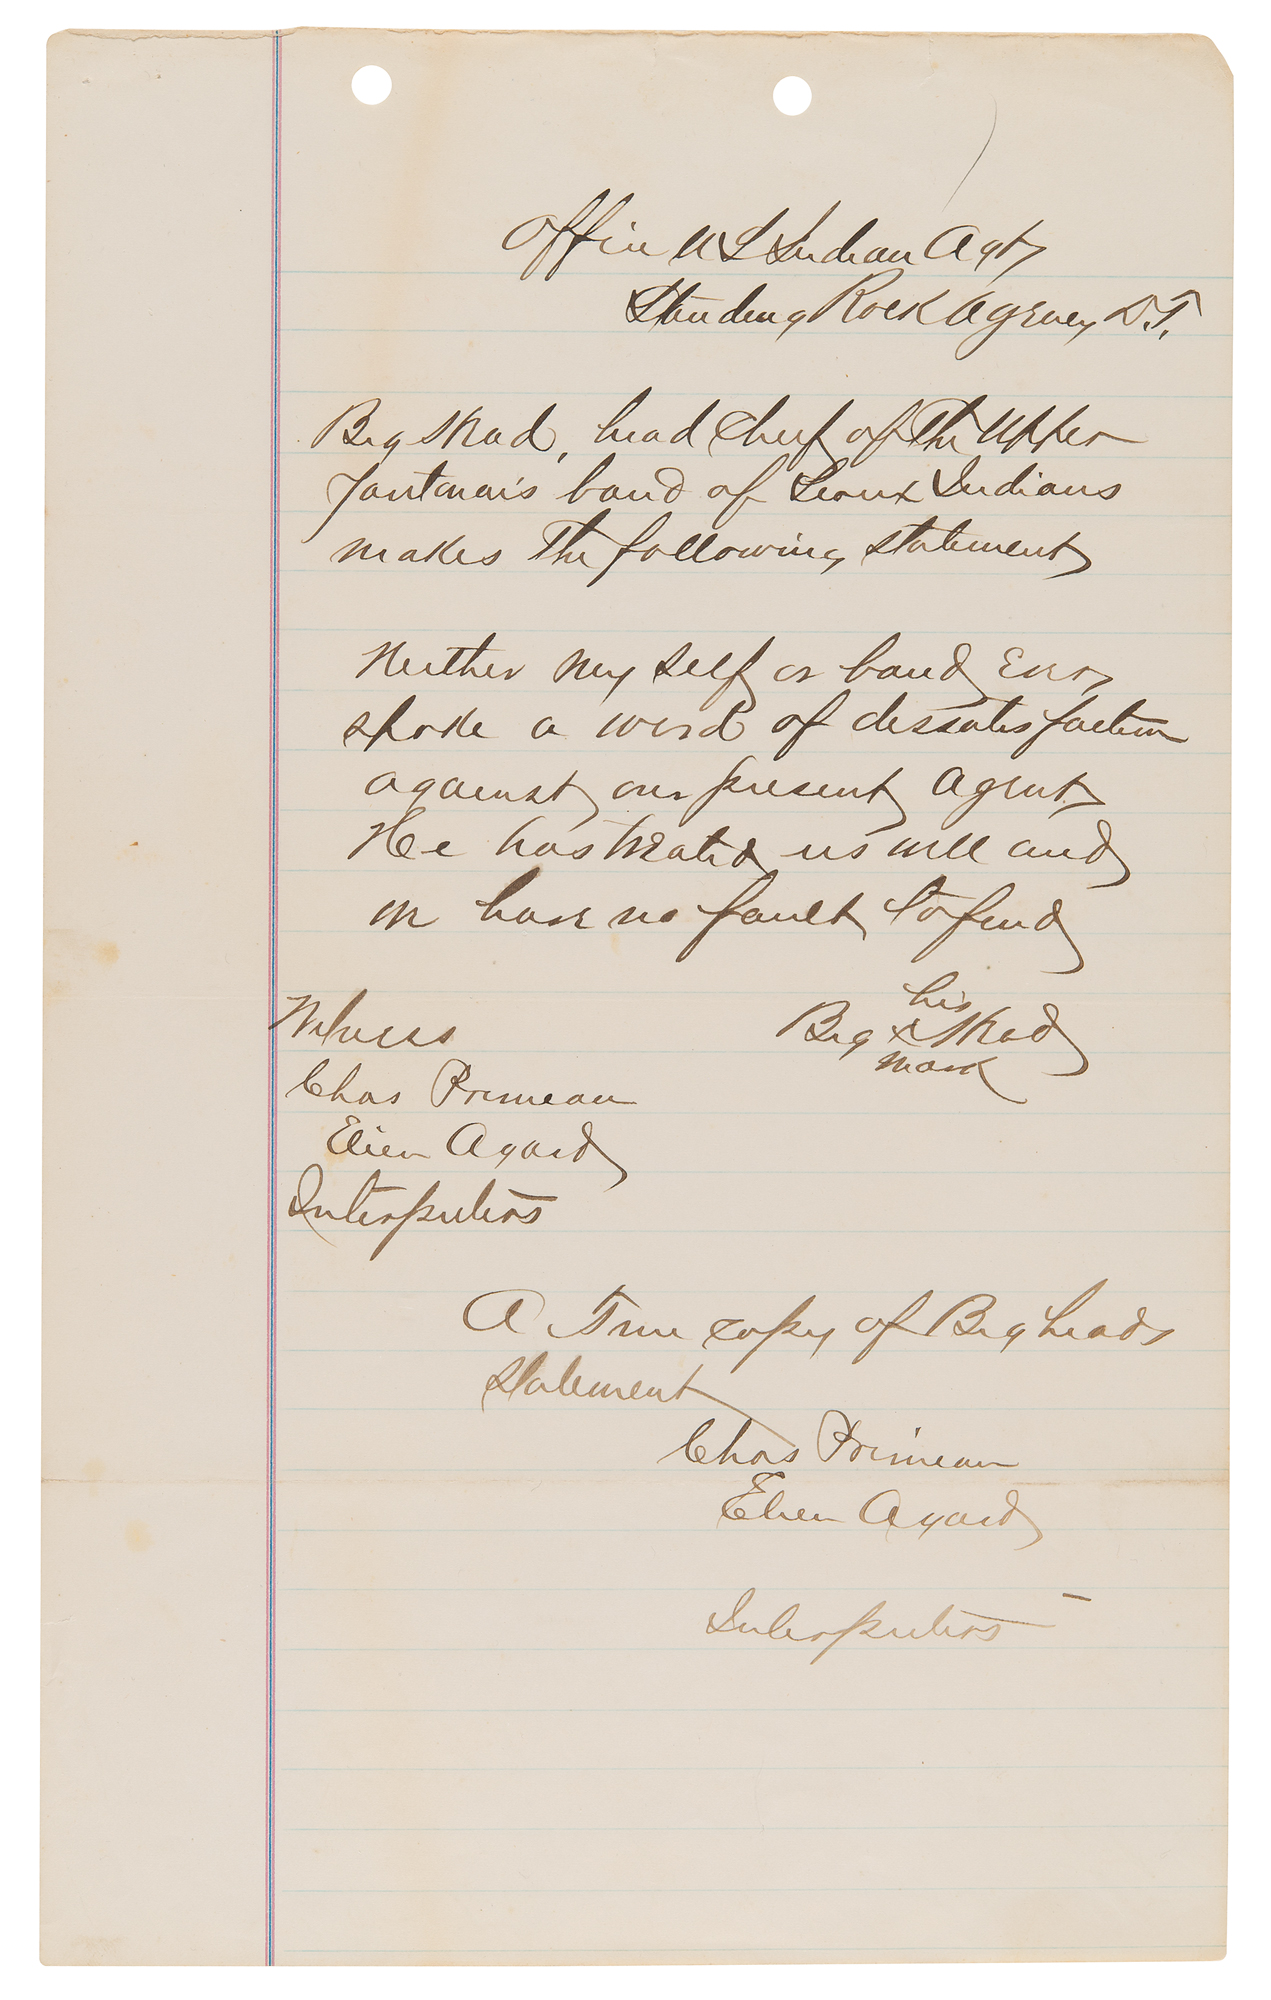 Office U S Indian Agt
Standing Rock Agency D.T.
Big Head, head chief of the Upper
Yantonais band of Sioux Indians
makes the following statement
Neither my self or band Ever
spoke a word of dissatisfaction
against our present Agent
He has treated us well and
we have no fault to find
Witness
his
Big x Head
mark
Chas Primeau
Elien Agard
Interpreters
A True copy of Big heads
statement
Chas Primeau
Elien Agard
Interpreters